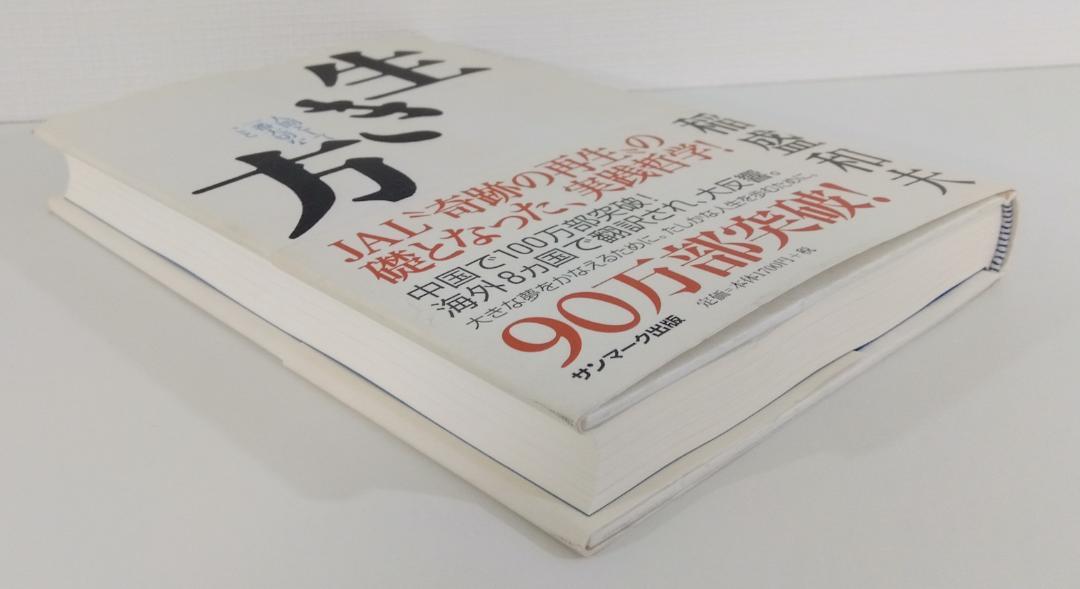 生き方
稲盛和夫
JAL“奇跡の再生”の
礎となった、実践哲学!
中国で100万部突破!
海外8カ国で翻訳され、大反響。
大きな夢をかなえるために、たしかな人生を歩むために。
90万部突破!
定価=本体1700円+税
サンマーク出版